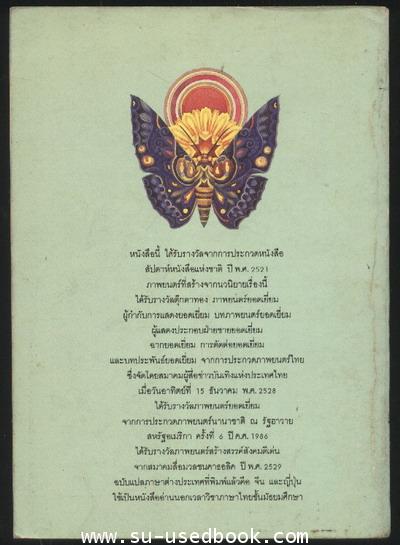 หนังสือนี้ ได้รับรางวัลจากการประกวดหนังสือ
สัปดาห์หนังสือแห่งชาติ ปี พ.ศ. 2521
ภาพยนตร์ที่สร้างจากนวนิยายเรื่องนี้
ได้รับรางวัลตุ๊กตาทอง ภาพยนตร์ยอดเยี่ยม
ผู้กำกับการแสดงยอดเยี่ยม บทภาพยนตร์ยอดเยี่ยม
ผู้แสดงประกอบฝ่ายชายยอดเยี่ยม
ฉากยอดเยี่ยม การตัดต่อยอดเยี่ยม
และบทประพันธ์ยอดเยี่ยม จากการประกวดภาพยนตร์ไทย
ซึ่งจัดโดยสมาคมผู้สื่อข่าวบันเทิงแห่งประเทศไทย
เมื่อวันอาทิตย์ที่ 15 ธันวาคม พ.ศ. 2528
ได้รับรางวัลภาพยนตร์ยอดเยี่ยม
จากการประกวดภาพยนตร์นานาชาติ ณ รัฐฮาวาย
สหรัฐอเมริกา ครั้งที่ 6 ปี ค.ศ. 1986
ได้รับรางวัลภาพยนตร์สร้างสรรค์สังคมดีเด่น
จากสมาคมสื่อมวลชนคาธอลิค ปี พ.ศ. 2529
ฉบับแปลภาษาต่างประเทศที่พิมพ์แล้วคือ จีน และญี่ปุ่น
ใช้เป็นหนังสืออ่านนอกเวลาวิชาภาษาไทยชั้นมัธยมศึกษา
www.su-usedbook.com